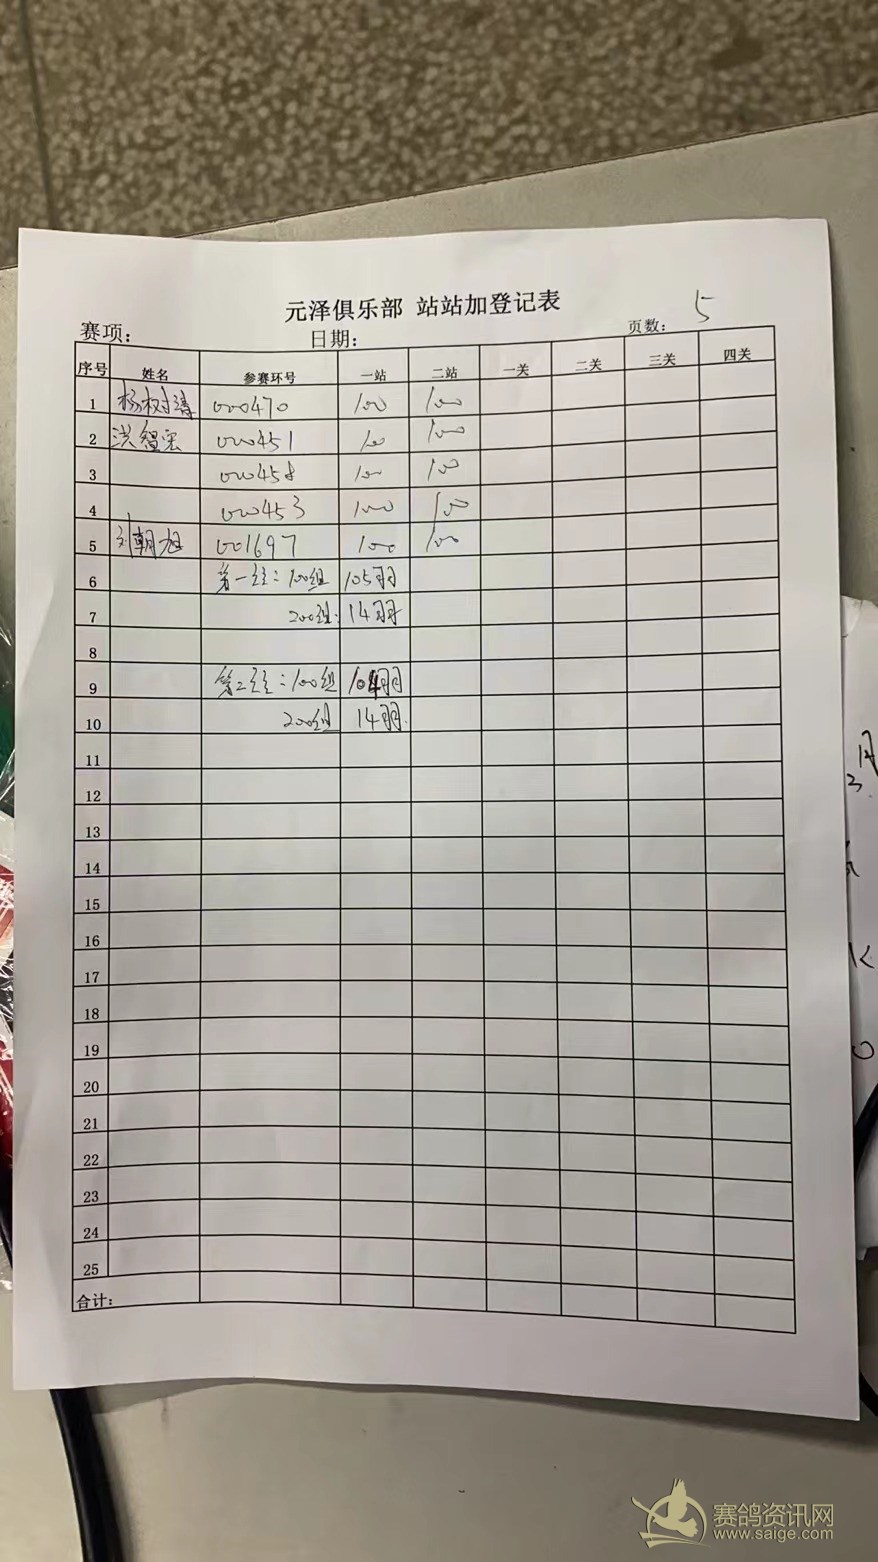 元泽俱乐部 站站加登记表
赛项： 日期： 页数： 5
序号 姓名 参赛环号 一站 二站 一关 二关 三关 四关
1 杨树涛 000470 100 100
2 洪智宏 000451 100 100
3 000458 100 100
4 000453 100 100
5 刘朝旭 001697 100 100
6 第一站：100组 105羽
7 200组： 14羽
8
9 第二站：100组 104羽
10 200组 14羽
11
12
13
14
15
16
17
18
19
20
21
22
23
24
25
合计：
赛鸽资讯网
www.saige.com